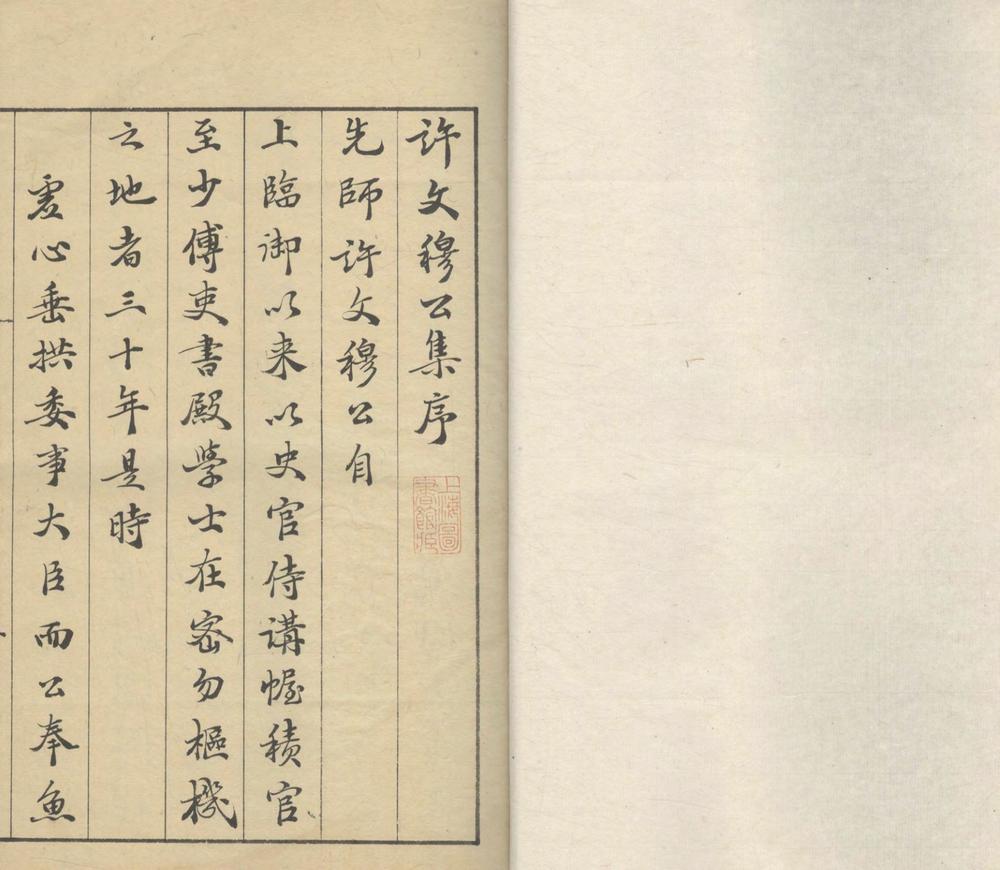 許文穆公集序
上海圖書館藏
先師許文穆公自
上臨御以来以史官侍講幄積官
至少傅吏書殿學士在密勿樞機
之地者三十年是時
虚心垂拱委事大臣而公奉魚